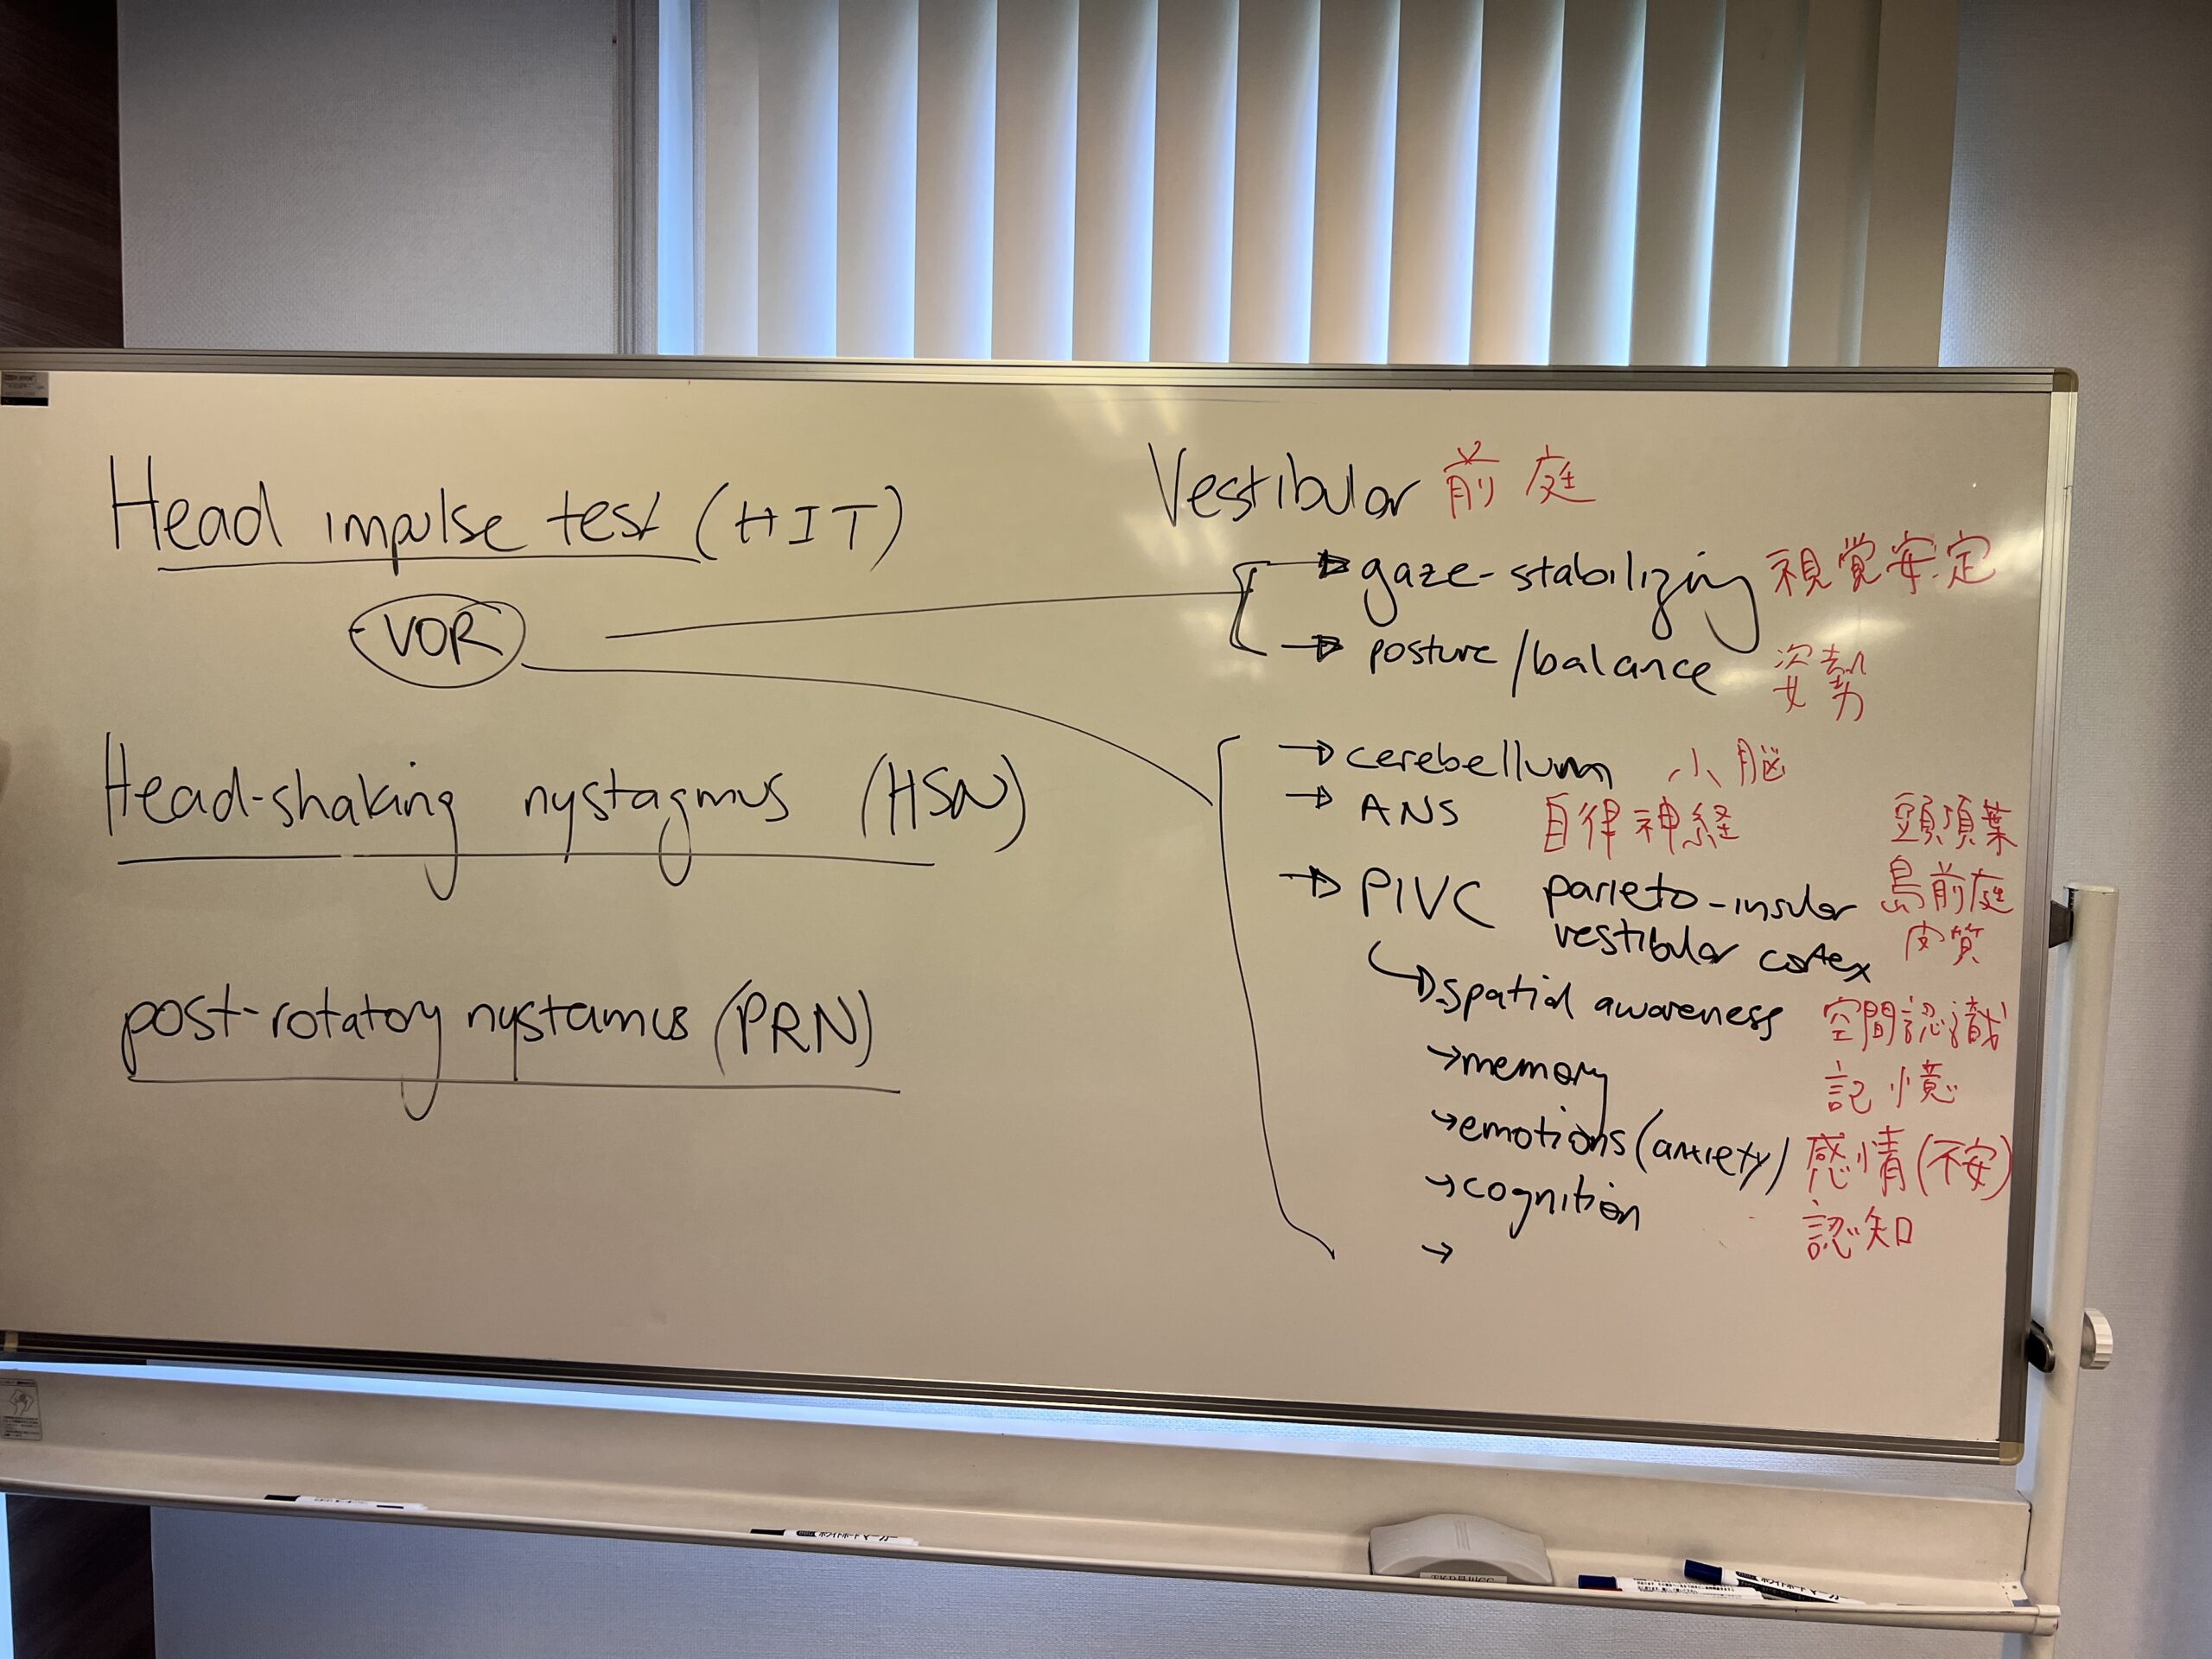 Head impulse test (HIT)
VOR
Head-shaking nystagmus (HSN)
post-rotatory nystamus (PRN)
Vestibular 前庭
→ gaze-stabilizing 視覚安定
→ posture/balance 姿勢
→ cerebellum 小脳
→ ANS 自律神経
→ PIVC parieto-insular vestibular cortex
頭頂葉
島前庭
皮質
→ spatial awareness 空間認識
→ memory 記憶
→ emotions (anxiety) 感情 (不安)
→ cognition 認知
→
ホワイトボードマーカー